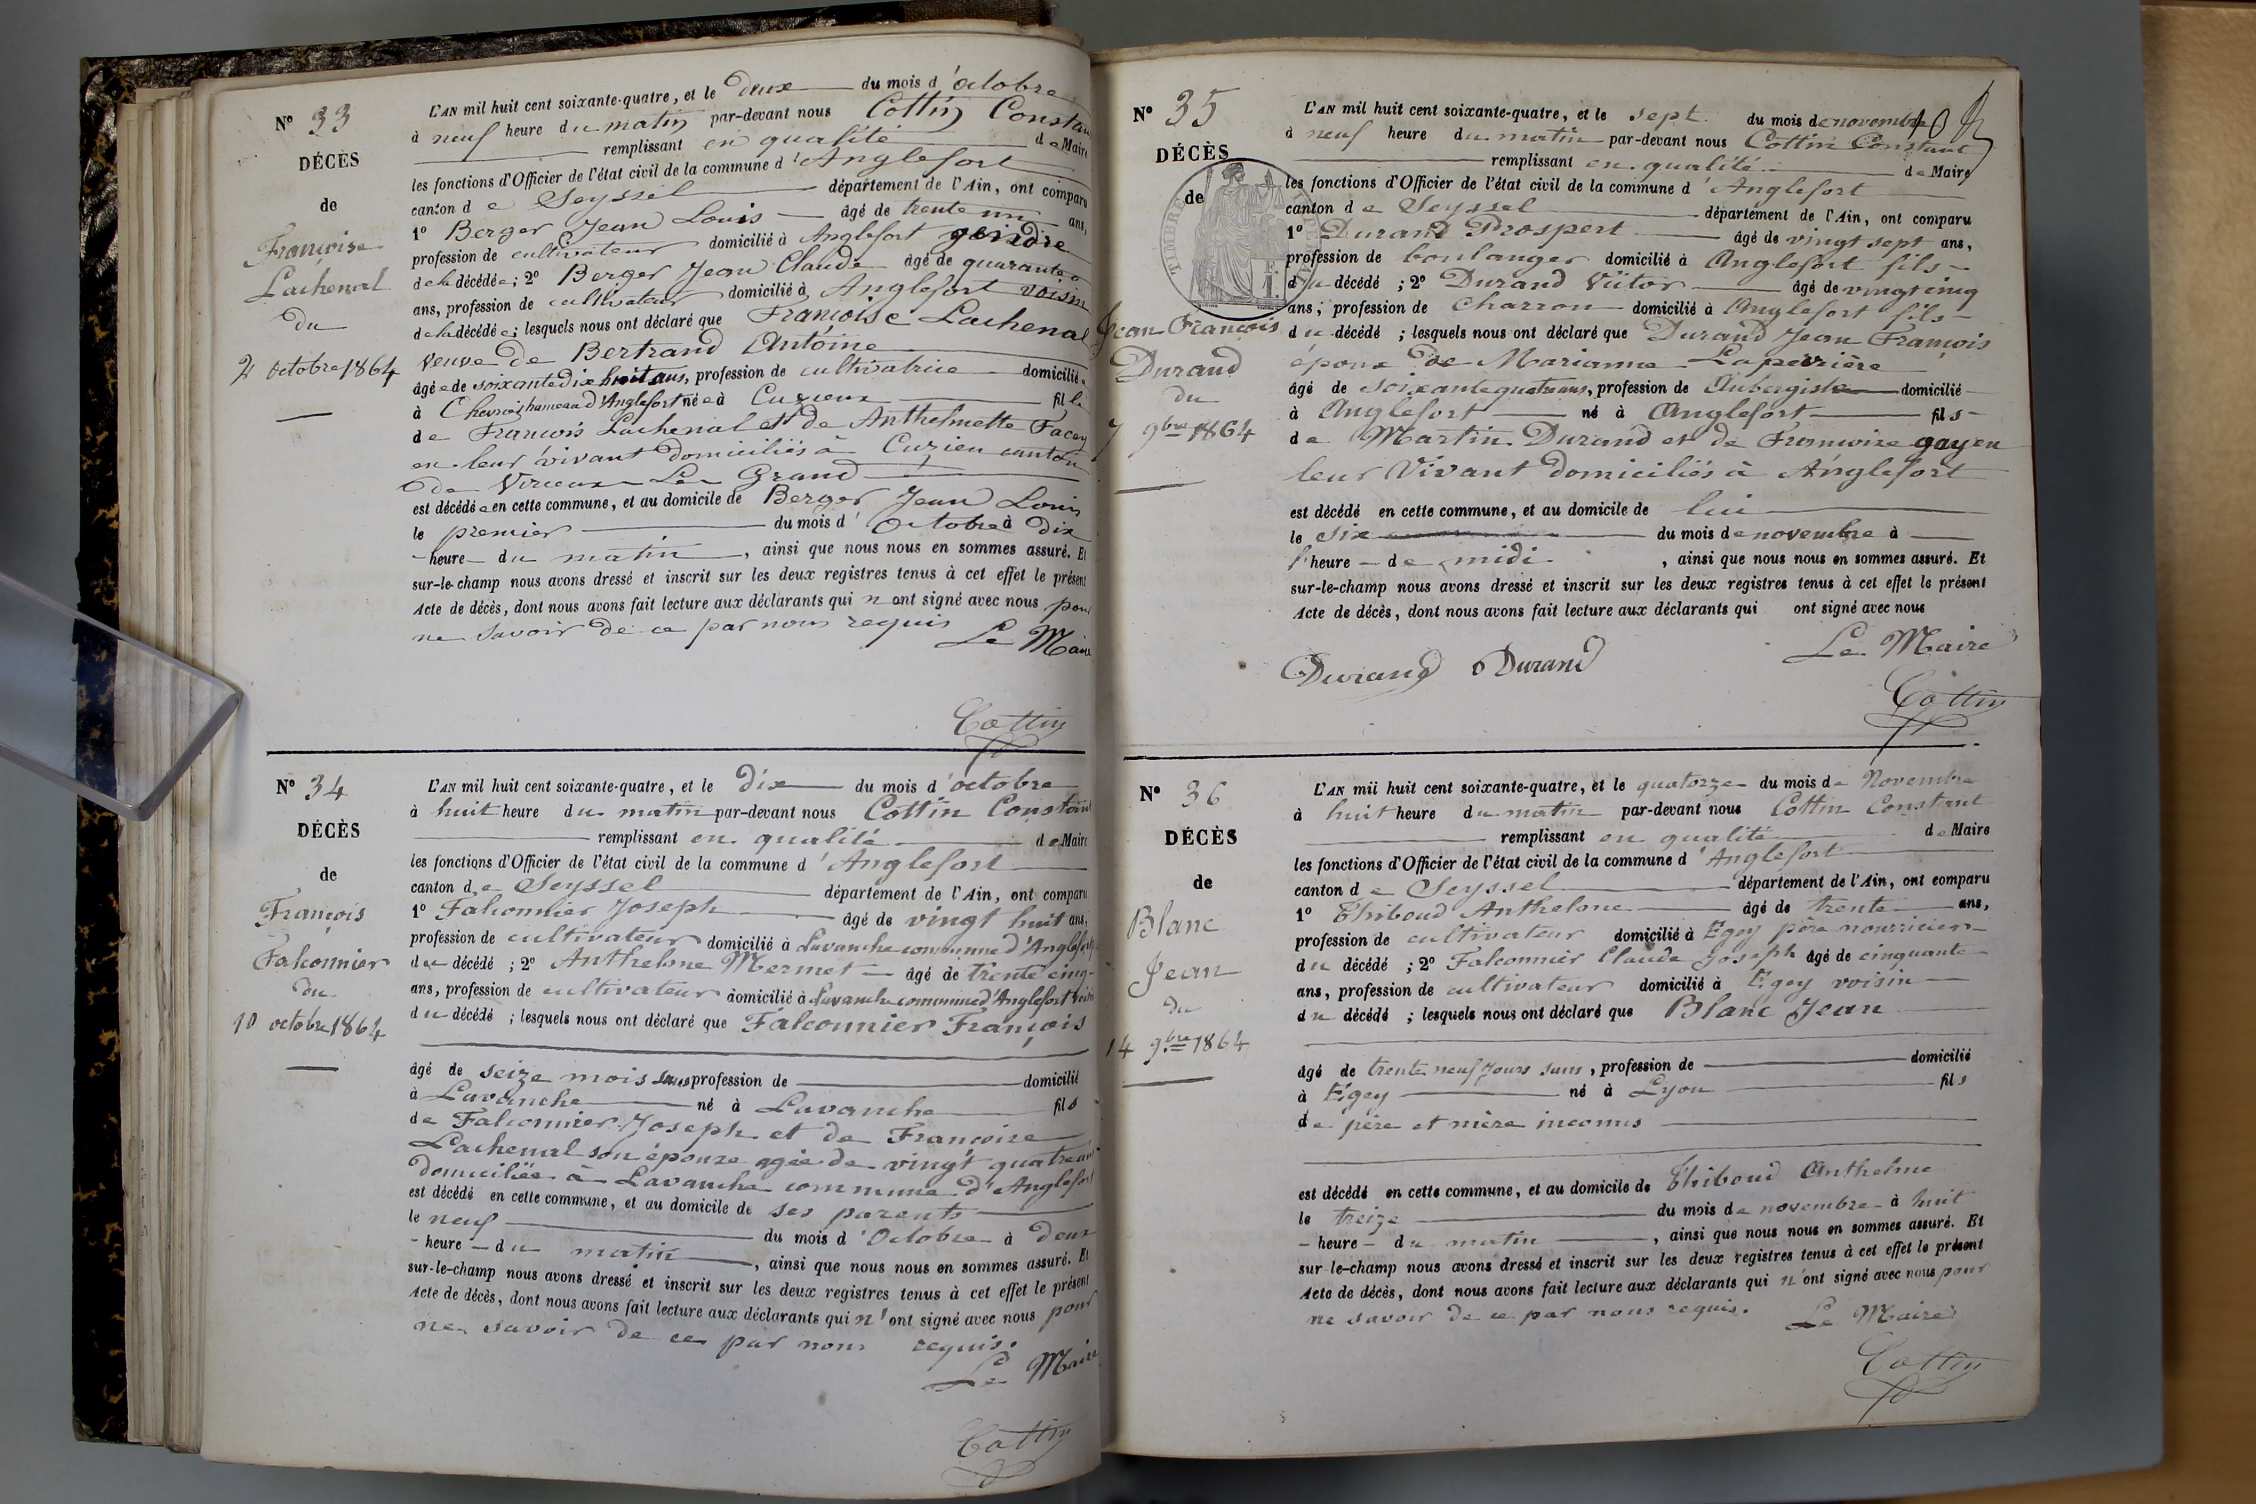 N° 33
DÉCÈS
de
Françoise
Lachenal
du
2 octobre 1864
L'AN mil huit cent soixante-quatre, et le deux du mois d'octobre
à neuf heure du matin par-devant nous Cottin Constan
remplissant en qualité de Maire
les fonctions d'Officier de l'état civil de la commune d'Anglefort
canton de Seyssel département de l'Ain, ont comparu
1° Berger Jean Louis âgé de trente un ans,
profession de cultivateur domicilié à Anglefort geindre
de la décédée; 2° Berger Jean Claude âgé de quarante
ans, profession de cultivateur domicilié à Anglefort voisin
de la décédée; lesquels nous ont déclaré que Françoise Lachenal
veuve de Bertrand Antoine
âgée de soixante dix huit ans, profession de cultivatrice domiciliée
à hameau d'Anglefort née à Cuzieux fille
de François Lachenal et de Anthelmette Facey
en leur vivant domiciliés à Cuzieu canton
de Virieux Le Grand
est décédée en cette commune, et au domicile de Berger Jean Louis
le premier du mois d'Octobre à dix
heure du matin, ainsi que nous nous en sommes assuré. Et
sur-le-champ nous avons dressé et inscrit sur les deux registres tenus à cet effet le présent
Acte de décès, dont nous avons fait lecture aux déclarants qui n'ont signé avec nous pour
ne savoir de ce par nous requis
Le Maire
Cottin
N° 34
DÉCÈS
de
François
Falconnier
du
10 octobre 1864
L'AN mil huit cent soixante-quatre, et le dix du mois d'octobre
à huit heure du matin par-devant nous Cottin Constant
remplissant en qualité de Maire
les fonctions d'Officier de l'état civil de la commune d'Anglefort
canton de Seyssel département de l'Ain, ont comparu
1° Falconnier Joseph âgé de vingt huit ans,
profession de cultivateur domicilié à Lavanche commune d'Anglefort
du décédé; 2° Anthelme Mermet âgé de trente cinq
ans, profession de cultivateur domicilié à Lavanche commune d'Anglefort voisin
du décédé; lesquels nous ont déclaré que Falconnier François
âgé de seize mois sans profession de domicilié
à Lavanche né à Lavanche fils
de Falconnier Joseph et de Françoise
Lachenal son épouze agée de vingt quatre ans
domiciliée à Lavanche commune d'Anglefort
est décédé en cette commune, et au domicile de ses parents
le neuf du mois d'Octobre à deux
heure du matin, ainsi que nous nous en sommes assuré. Et
sur-le-champ nous avons dressé et inscrit sur les deux registres tenus à cet effet le présent
Acte de décès, dont nous avons fait lecture aux déclarants qui n'ont signé avec nous pour
ne savoir de ce par nous requis.
Le Maire
Cottin
10
N° 35
DÉCÈS
de
TIMBRE
Jean François
Durand
du
7 9bre 1864
L'AN mil huit cent soixante-quatre, et le sept du mois de novembre
à neuf heure du matin par-devant nous Cottin Constant
remplissant en qualité de Maire
les fonctions d'Officier de l'état civil de la commune d'Anglefort
canton de Seyssel département de l'Ain, ont comparu
1° Durand Prospert âgé de vingt sept ans,
profession de boulanger domicilié à Anglefort fils
du décédé; 2° Durand Victor âgé de vingt cinq
ans, profession de Charron domicilié à Anglefort fils
du décédé; lesquels nous ont déclaré que Durand Jean François
époux de Marianne Laperrière
âgé de soixante quatre ans, profession de Aubergiste domicilié
à Anglefort né à Anglefort fils
de Martin Durand et de Françoise gay en
leur Vivant domiciliés à Anglefort
est décédé en cette commune, et au domicile de lui
le six du mois de novembre à
l'heure de midi, ainsi que nous nous en sommes assuré. Et
sur-le-champ nous avons dressé et inscrit sur les deux registres tenus à cet effet le présent
Acte de décès, dont nous avons fait lecture aux déclarants qui ont signé avec nous
Le Maire
Durand Durand
Cottin
N° 36
DÉCÈS
de
Blanc
Jean
du
14 9bre 1864
L'AN mil huit cent soixante-quatre, et le quatorze du mois de Novembre
à huit heure du matin par-devant nous Cottin Constant
remplissant en qualité de Maire
les fonctions d'Officier de l'état civil de la commune d'Anglefort
canton de Seyssel département de l'Ain, ont comparu
1° Thiboud Anthelme âgé de trente ans,
profession de cultivateur domicilié à Egey père nourricier
du décédé; 2° Falconnier Claude Joseph âgé de cinquante
ans, profession de cultivateur domicilié à Egey voisin
du décédé; lesquels nous ont déclaré que Blanc Jean
âgé de trente neuf jours sans, profession de domicilié
à Egey né à Lyon fils
de père et mère inconnus
est décédé en cette commune, et au domicile de Thiboud Anthelme
le treize du mois de novembre à huit
heure du matin, ainsi que nous nous en sommes assuré. Et
sur-le-champ nous avons dressé et inscrit sur les deux registres tenus à cet effet le présent
Acte de décès, dont nous avons fait lecture aux déclarants qui n'ont signé avec nous pour
ne savoir de ce par nous requis.
Le Maire
Cottin